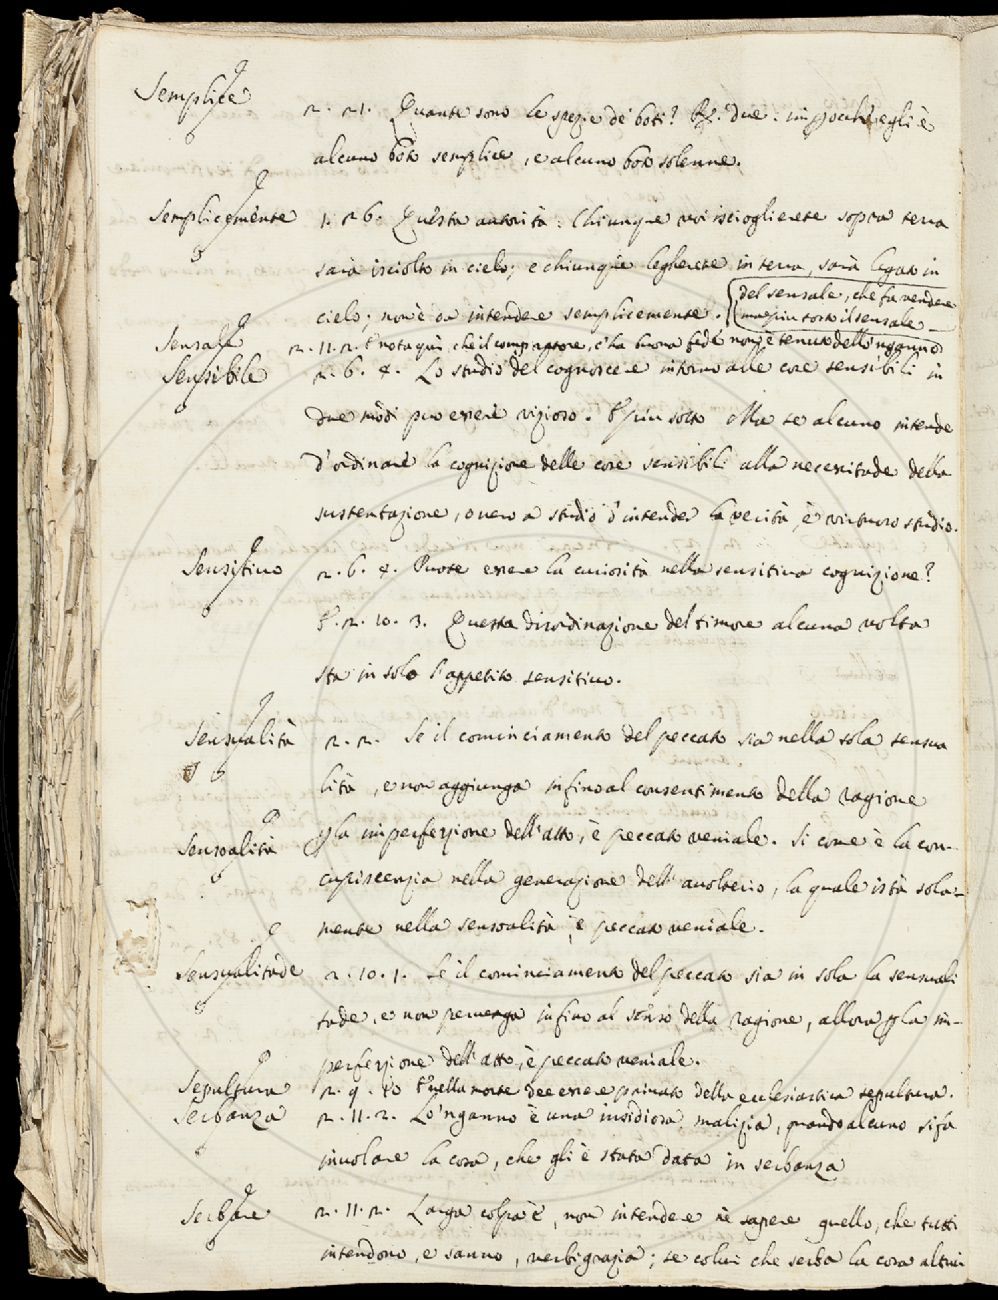 Semplice
2. 21. Quante sono le spezie de boti? R. due: imperocch' egli è
alcuno boto semplice, e alcuno boto solenne.
Semplicemente 1. 26. Questa autorità: Chiunque voi iscioglierete sopra terra
sarà isciolto in cielo; e chiunque legherete in terra, sarà legato in
cielo; non è da intendere semplicemente.
del sensale, che fa vendere
ma più tosto il sensale
Sensale 2. 11. 2. E nota qui che il compratore, c'ha buona fede non è tenuto dello 'nganno
Sensibile 2. 6. 4. Lo studio del cognoscere intorno alle cose sensibili in
due modi può essere vizioso. E più sotto Ma se alcuno intende
d'ordinare la cognizione delle cose sensibili alla necessitade della
sustentazione, ovvero a studio d'intender la verità, è virtuoso studio.
Sensitivo 2. 6. 4. Puote essere la curiosità nella sensitiva cognizione?
E. 2. 10. 3. Questa disordinazione del timore alcuna volta
sta in solo l'appetito sensitivo.
Sensualità 2. 2. Se il cominciamento del peccato sia nella sola sensua
lità, e non aggiunga infino al consentimento della ragione
p la imperfezione dell'atto, è peccato veniale. Si come è la con-
Sensoalità
cupiscenzia nella generazione dell'avolterio, la quale istà sola-
mente nella sensoalità, è peccato veniale.
Sensualitade 2. 10. 1. Se il cominciamento del peccato sia in sola la sensuali
tade, e non pervenga infino al senso della ragione, allora p la im-
perfezione dell'atto, è peccato veniale.
Sepultura 2. 9. 10 E nella morte dee essere privato della ecclesiastica sepultura.
Serbanza 2. 11. 2. Lo 'nganno è una insidiosa malizia, quando alcuno si fa
involare la cosa, che gli è stata data in serbanza
Serbare 2. 11. 2. Larga colpa è, non intendere nè sapere quello, che tutti
intendono, e sanno, verbigrazia; se colui che serba la cosa altrui